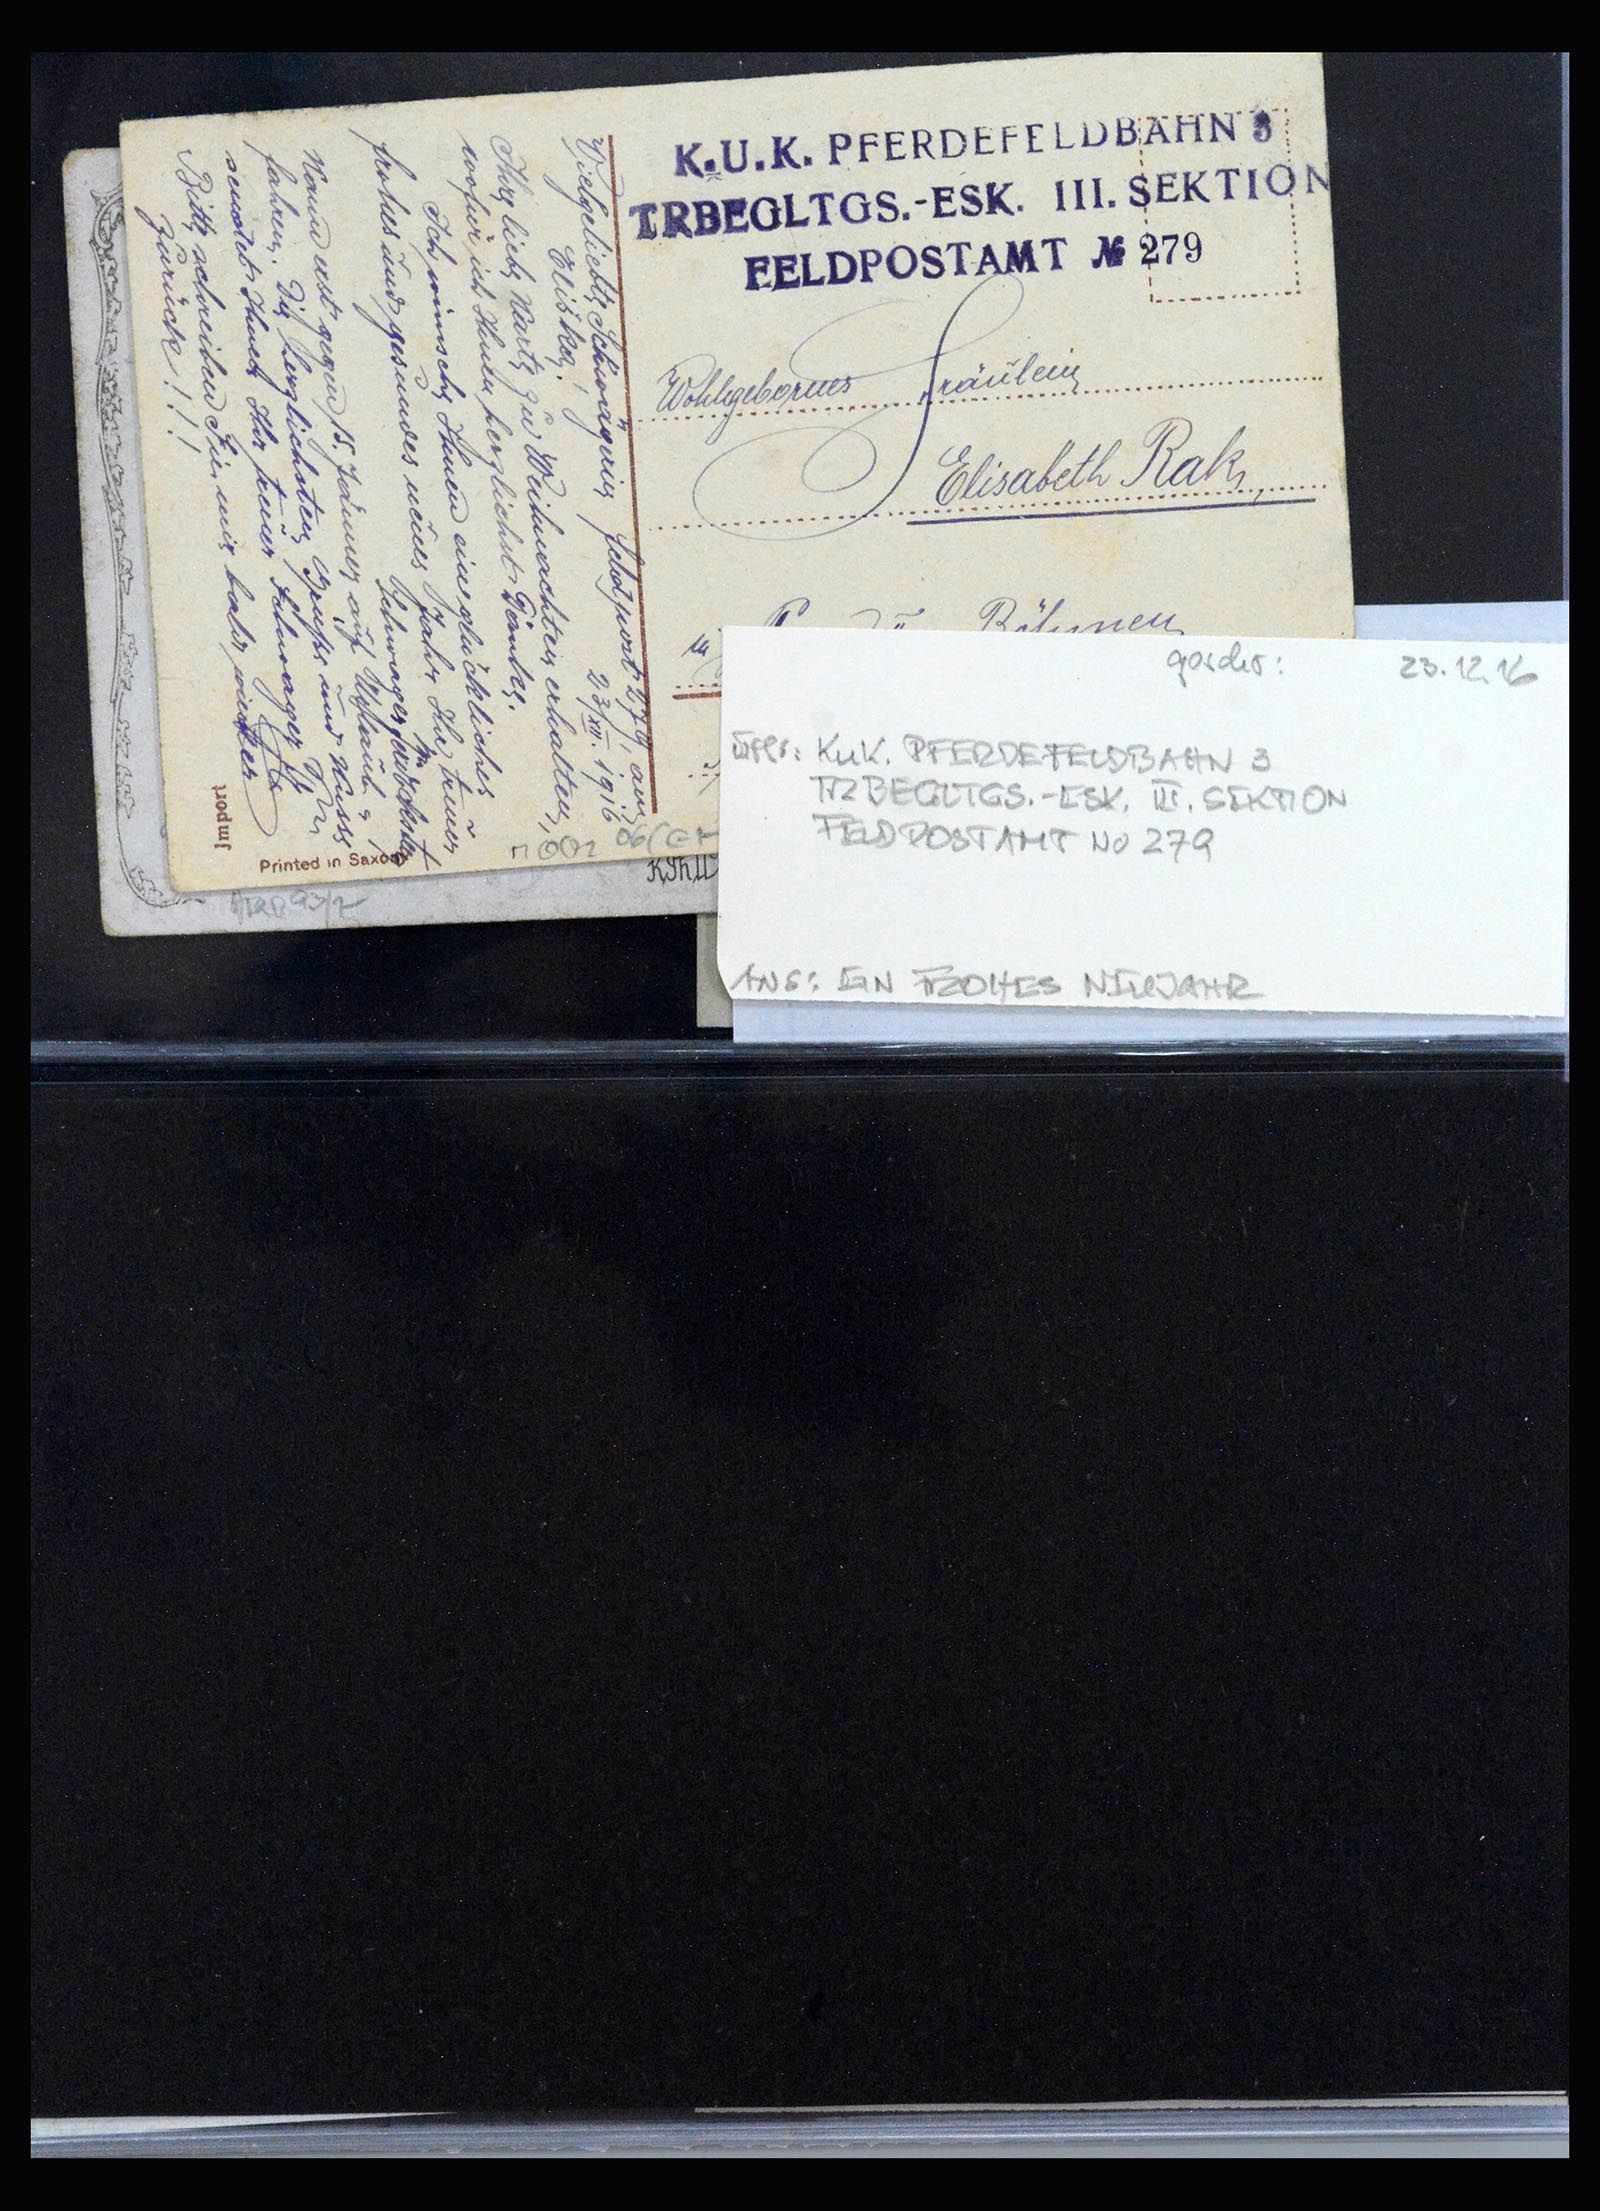 K.U.K. PFERDEFELDBAHN 3
TRBEGLTGS.-ESK. III. SEKTION
FELDPOSTAMT № 279
Wohlgebornes Fräulein
Elisabeth Rak,
Böhmen
Feldpost 279, am
23/XII. 1916
Vielgeliebte Schwägerin
Eliška!
Ihre liebe Karte zu Weihnachten erhalten,
wofür ich Ihnen herzlichst danke.
Ich wünsche Ihnen ein glückliches
frohes und gesundes neues Jahr. Ihr treuer
Schwager
Kann erst gegen 15. Jänner auf Urlaub
fahren. Die herzlichsten Grüsse und Küsse
sendet Ihnen Ihr treuer Schwager
Bitte schreiben Sie mir bald wieder
zurück!!!
Import
Printed in Saxony
23.12.16
K.u.K. PFERDEFELDBAHN 3
TRBEGLTGS.-ESK. III. SEKTION
FELDPOSTAMT No 279
ANS: EIN FROHES NEUJAHR